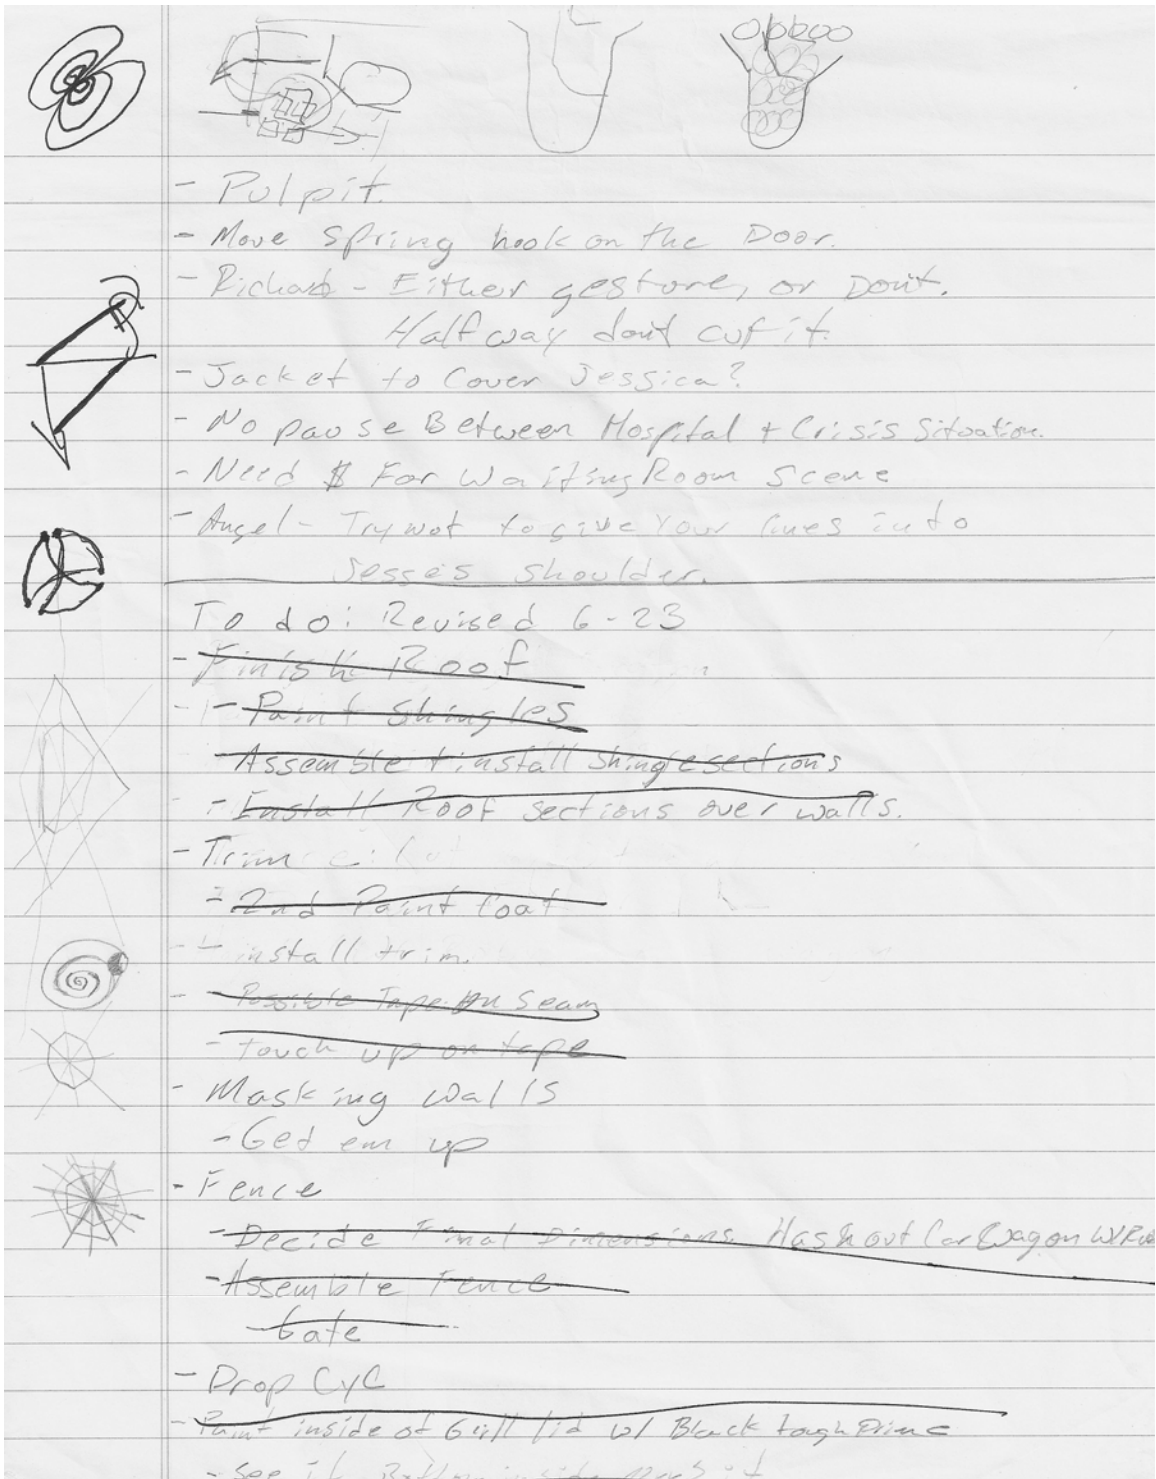 - Pulpit.
- Move Spring hook on the Door.
- Richard - Either gesture, or Dont.
Half way dont cut it.
- Jacket to Cover Jessica?
- No pause Between Hospital + Crisis Situation.
- Need $ For Waiting Room Scene
- Angel - Try not to give Your lines into
Jesse's Shoulder.
To do: Revised 6-23
- Finish Roof
- Paint Shingles
- Assemble + install Shingle sections
- Install Roof sections over walls.
- Trim
- 2nd Paint Coat
- install trim.
- Possible Tape on Seam
- Touch up on tape
- Masking walls
- Get em up
- Fence
- Decide Final Dimensions. Hash out Car Wagon W/
- Assemble Fence
- Gate
- Drop Cyc
- Paint inside of Grill lid w/ Black tough Prime
- See if Bottom inside